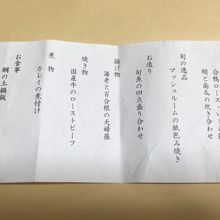 合鴨ロース
蛸と南瓜の炊き合わせ
旬の逸品
マッシュルームの紙包み焼き
お造り
旬魚の四点盛り合わせ
揚げ物
海老と百合根の天婦羅
焼き物
国産牛のローストビーフ
煮物
カレイの煮付け
お食事
鯛の土鍋飯